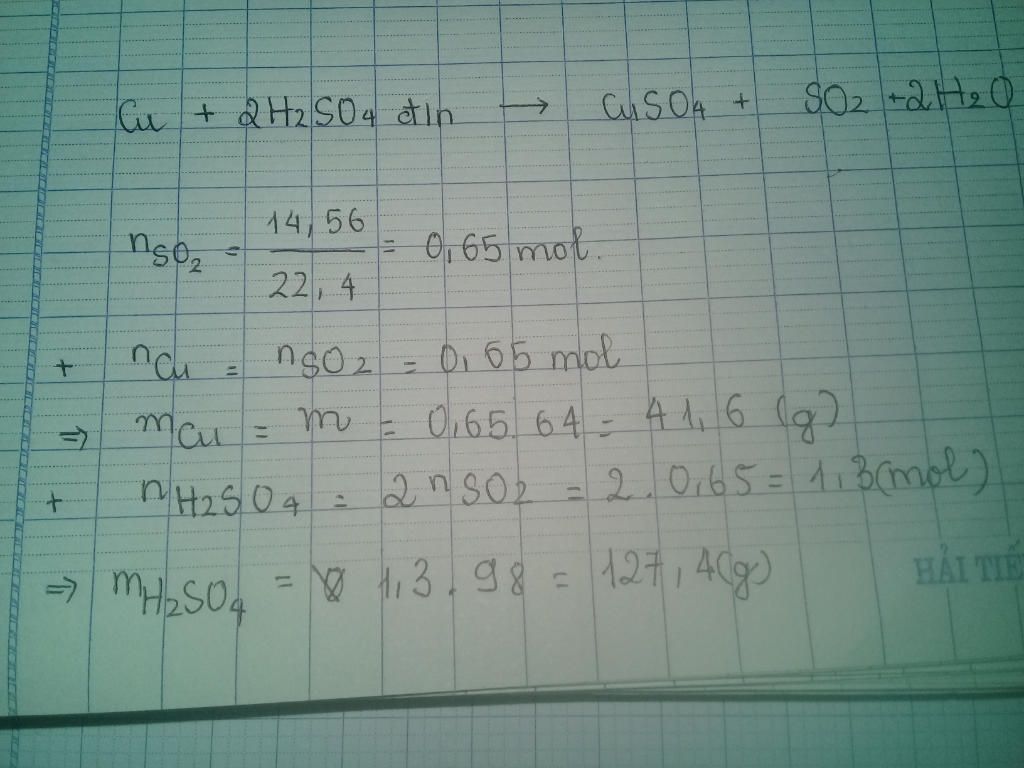 Cu + 2H2SO4 đ/n → CuSO4 + SO2 + 2H2O
nSO2 = 14,56 / 22,4 = 0,65 mol.
+ nCu = nSO2 = 0,65 mol
⇒ mCu = m = 0,65.64 = 41,6 (g)
+ nH2SO4 = 2nSO2 = 2.0,65 = 1,3(mol)
⇒ mH2SO4 = 1,3.98 = 127,4(g)
HẢI TIẾ